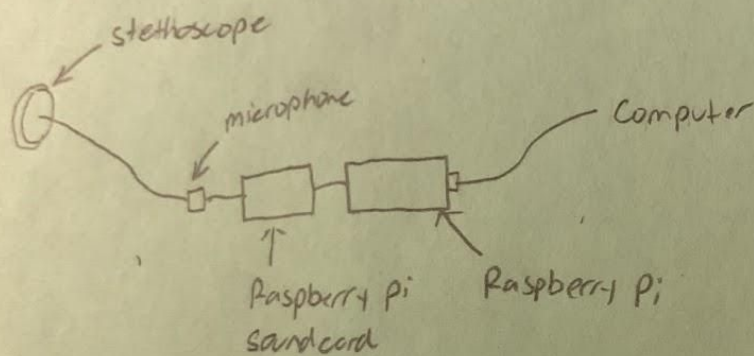 stethoscope
microphone
Computer
Raspberry Pi
soundcard
Raspberry Pi